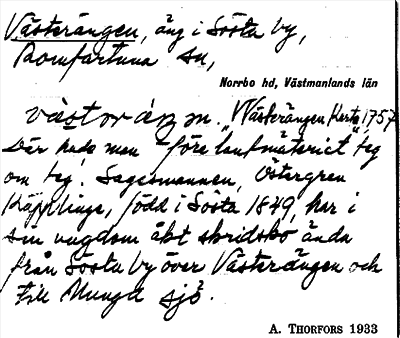 Västerängen, äng i Sösta by,
Romfartuna sn,
Norrbo hd, Västmanlands län
västoräŋŋ. "Västerängen Karta 1757
Där hade man "före laufmäteriet" teg
om teg. Sagesmannen, Östergren
Käpplinge, född i Sösta 1849, har i
sin ungdom åkt skridsko ända
från Sösta by över Västerängen och
till Munga sjö.
A. Thorfors 1933